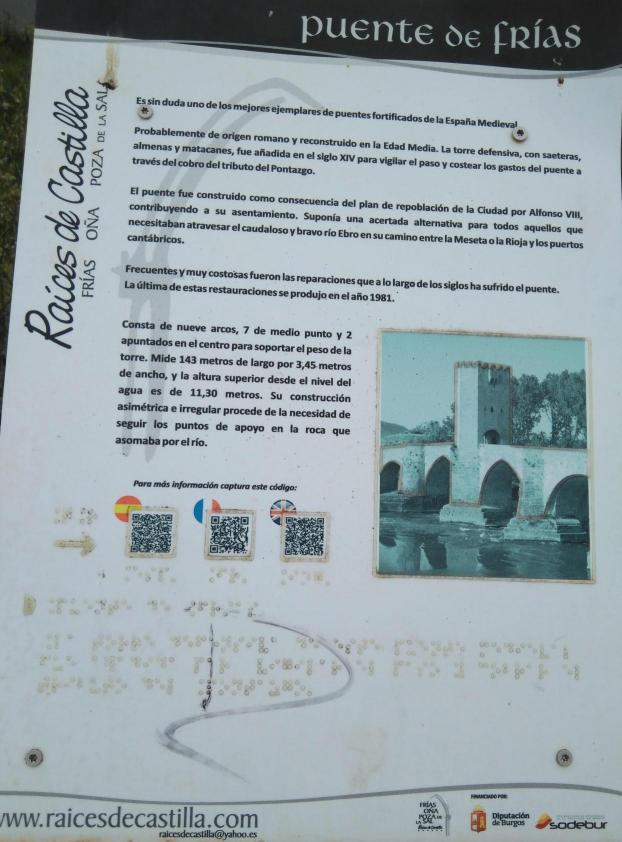 PUENTE DE FRÍAS
Raíces de Castilla
FRÍAS OÑA POZA DE LA SAL
Es sin duda uno de los mejores ejemplares de puentes fortificados de la España Medieval
Probablemente de origen romano y reconstruido en la Edad Media. La torre defensiva, con saeteras,
almenas y matacanes, fue añadida en el siglo XIV para vigilar el paso y costear los gastos del puente a
través del cobro del tributo del Pontazgo.
El puente fue construido como consecuencia del plan de repoblación de la Ciudad por Alfonso VIII,
contribuyendo a su asentamiento. Suponía una acertada alternativa para todos aquellos que
necesitaban atravesar el caudaloso y bravo río Ebro en su camino entre la Meseta o la Rioja y los puertos
cantábricos.
Frecuentes y muy costosas fueron las reparaciones que a lo largo de los siglos ha sufrido el puente.
La última de estas restauraciones se produjo en el año 1981.
Consta de nueve arcos, 7 de medio punto y 2
apuntados en el centro para soportar el peso de la
torre. Mide 143 metros de largo por 3,45 metros
de ancho, y la altura superior desde el nivel del
agua es de 11,30 metros. Su construcción
asimétrica e irregular procede de la necesidad de
seguir los puntos de apoyo en la roca que
asomaba por el río.
Para más información captura este código:
www.raicesdecastilla.com
raicesdecastilla@yahoo.es
FRÍAS
OÑA
POZA DE
LA SAL
Raíces de Castilla
FINANCIADO POR:
Diputación
de Burgos
sodebur